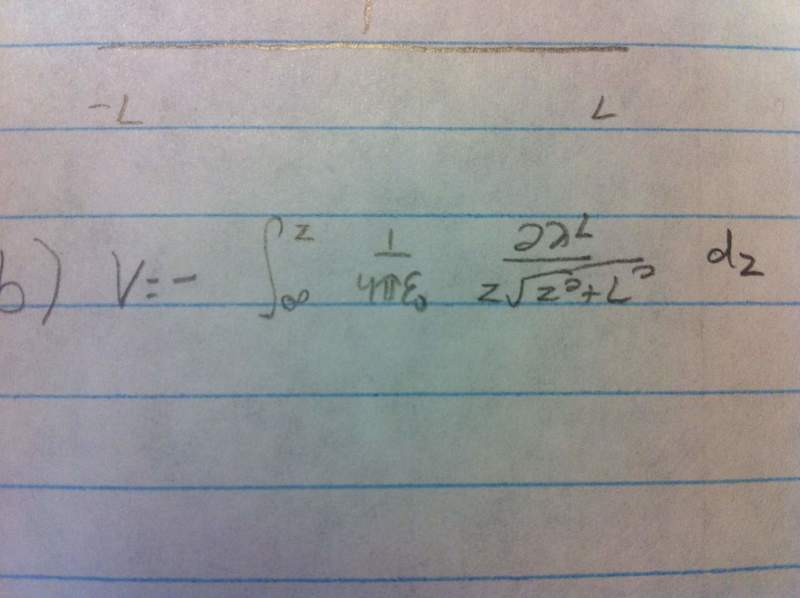 -L L
b) V=- ∫_∞^z 1/(4πε₀) 2λL/(z√(z²+L²)) dz